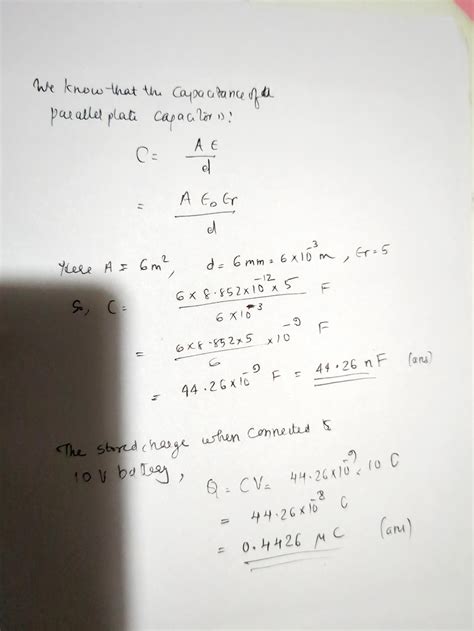 We know that the capacitance of a
parallel plate capacitor is:
C = A ε / d
= A ε₀ εr / d
Here A = 6m², d = 6mm = 6×10⁻³ m, εr = 5
So, C = 6 × 8.852×10⁻¹² × 5 / 6×10⁻³ F
= 6×8.852×5 / 6 ×10⁻⁹ F
= 44.26×10⁻⁹ F = 44.26 nF (ans)
The stored charge when connected to
10 V battery,
Q = CV = 44.26×10⁻⁹ × 10 C
= 44.26×10⁻⁸ C
= 0.4426 μC (ans)